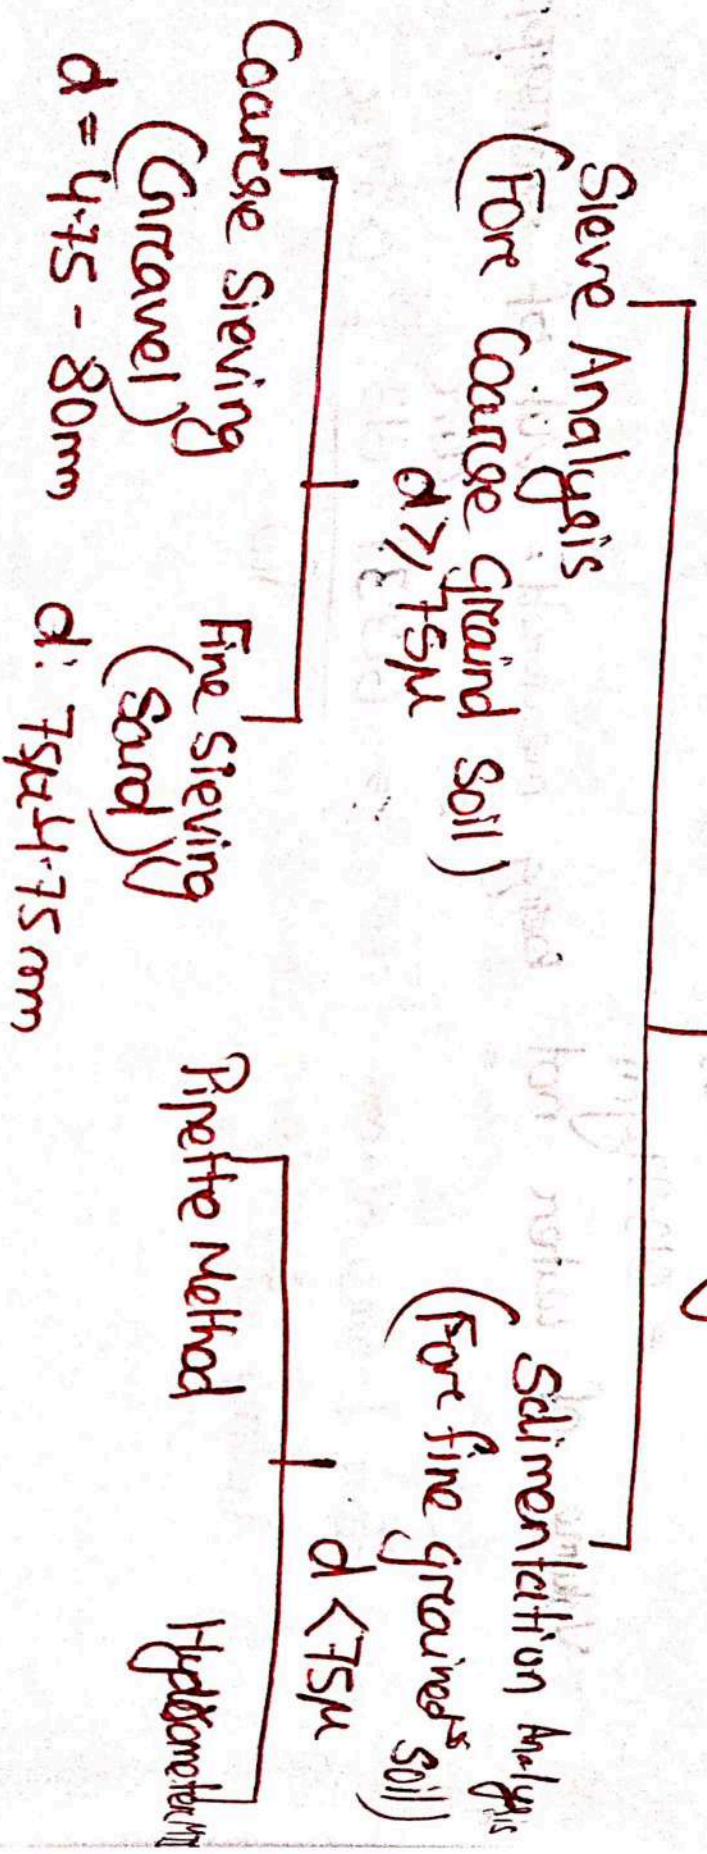 Sieve Analysis
(For Coarse graind Soil)
d ≥ 75μ
Coarse Sieving
(Gravel)
d = 4.75 - 80mm
Fine Sieving
(Sand)
d: 75μ-4.75mm
Sedimentation Analysis
(For fine grained Soil)
d < 75μ
Pipette Method
Hydrometer